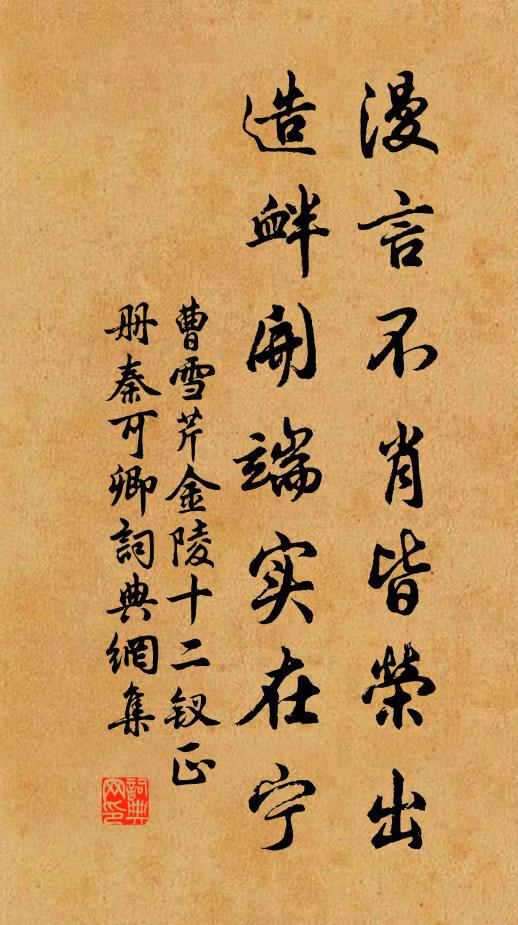 漫言不肖皆榮出
造衅開端实在宁
曹雪芹金陵十二钗正
册秦可卿詞典網集
詞典网印